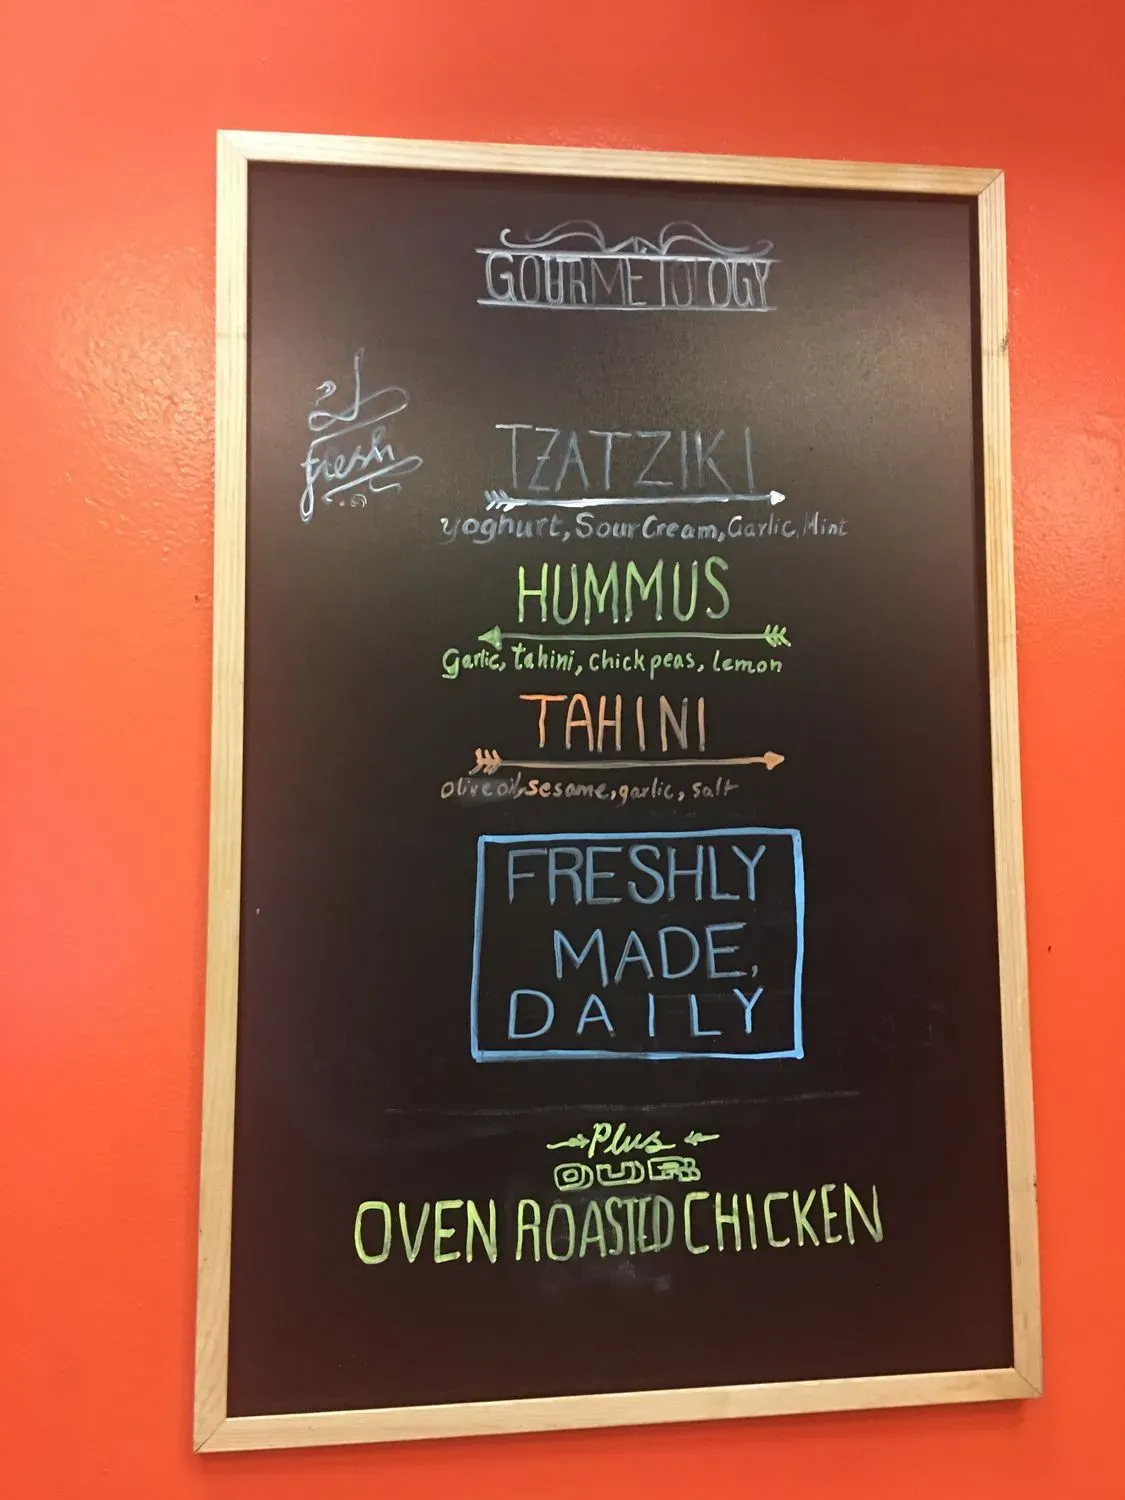 GOURMETOLOGY
fresh
TZATZIKI
yoghurt, Sour Cream, Garlic, Mint
HUMMUS
Garlic, tahini, chickpeas, Lemon
TAHINI
olive oil, sesame, garlic, salt
FRESHLY
MADE,
DAILY
Plus
OUR
OVEN ROASTED CHICKEN